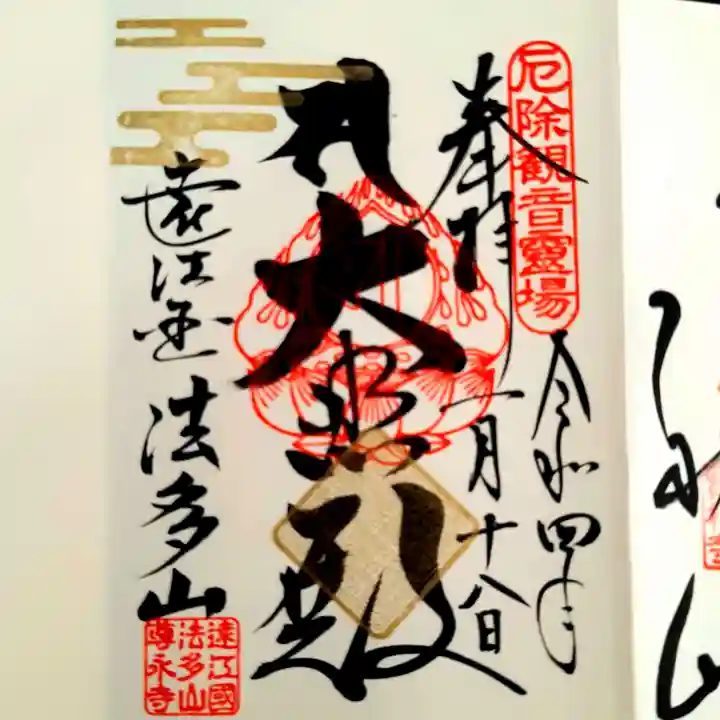 厄除観音靈場
令和四年
奉拝
一月十八日
大悲殿
遠江国 法多山
遠江國
法多山
尊永寺